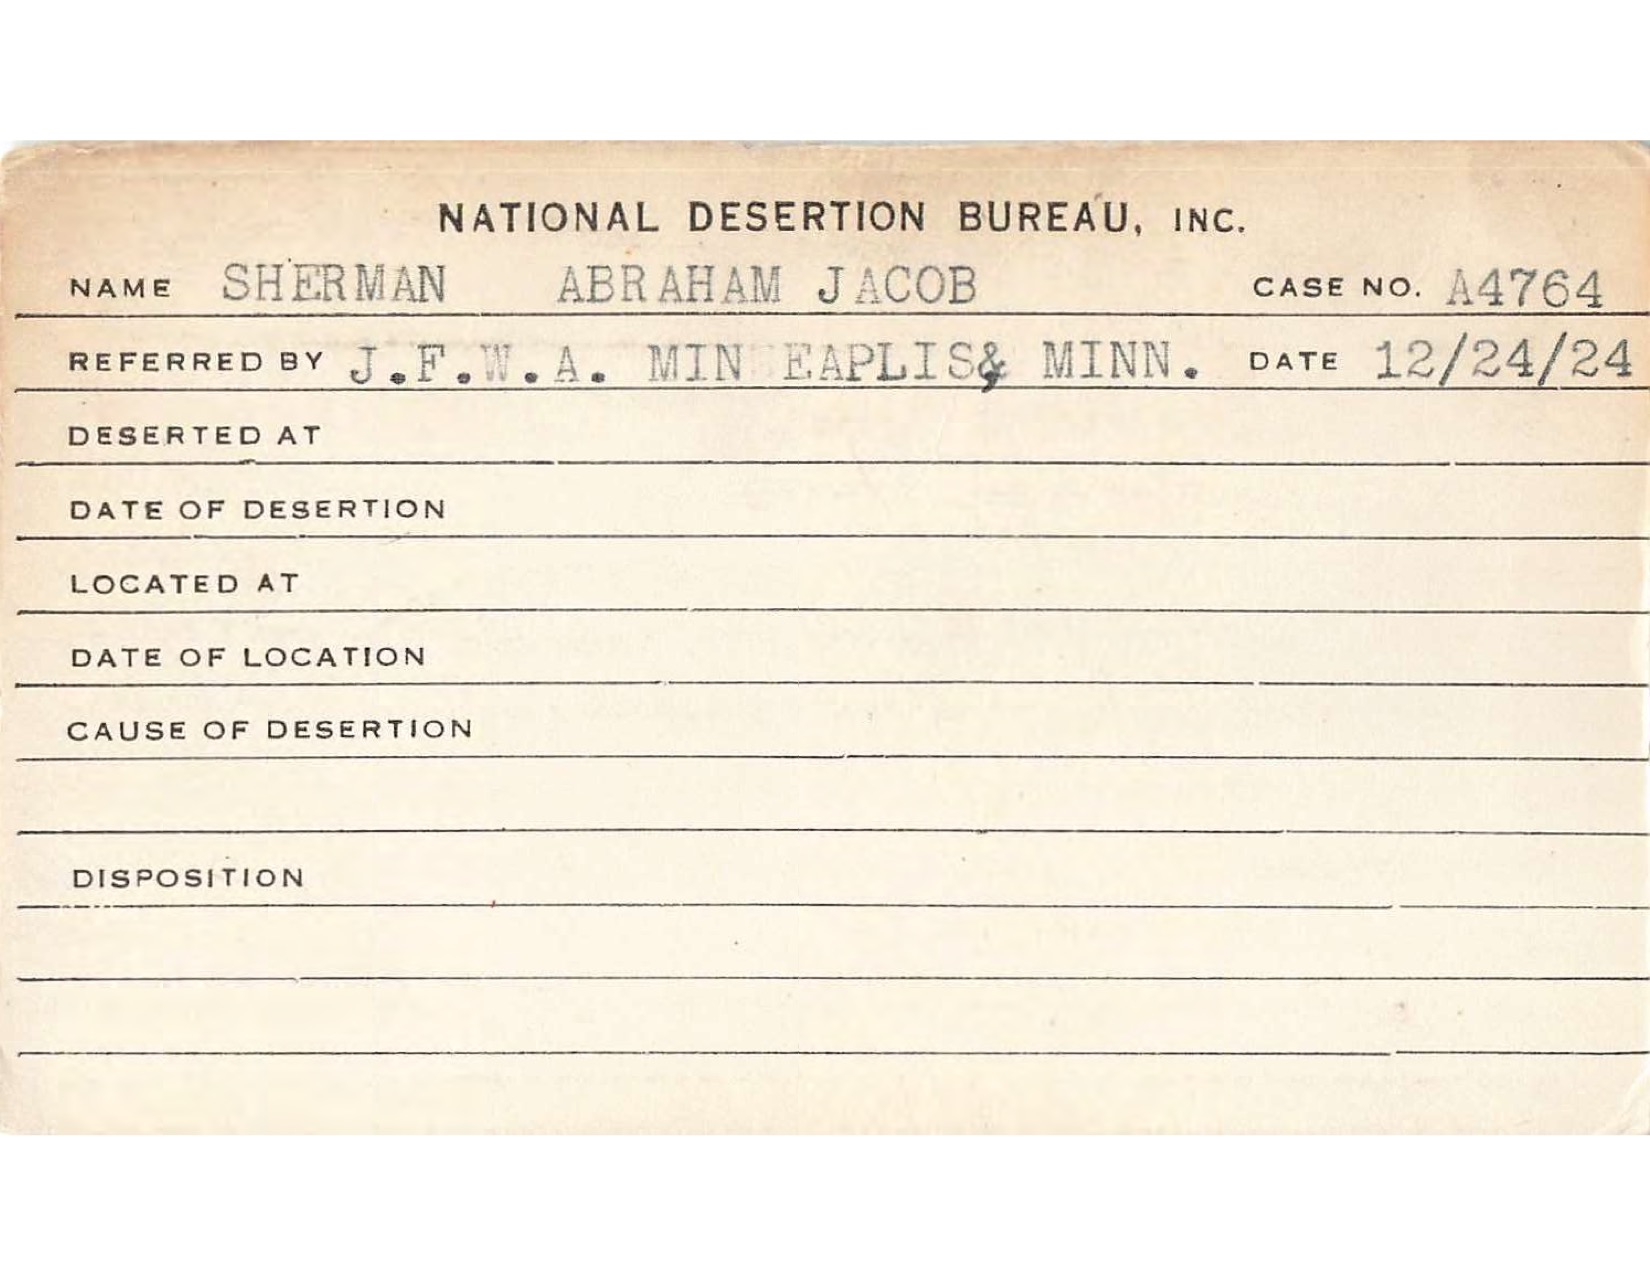 NATIONAL DESERTION BUREAU, INC.
NAME SHERMAN ABRAHAM JACOB CASE NO. A4764
REFERRED BY J.F.W.A. MIN EAPLIS, MINN. DATE 12/24/24
DESERTED AT
DATE OF DESERTION
LOCATED AT
DATE OF LOCATION
CAUSE OF DESERTION
DISPOSITION